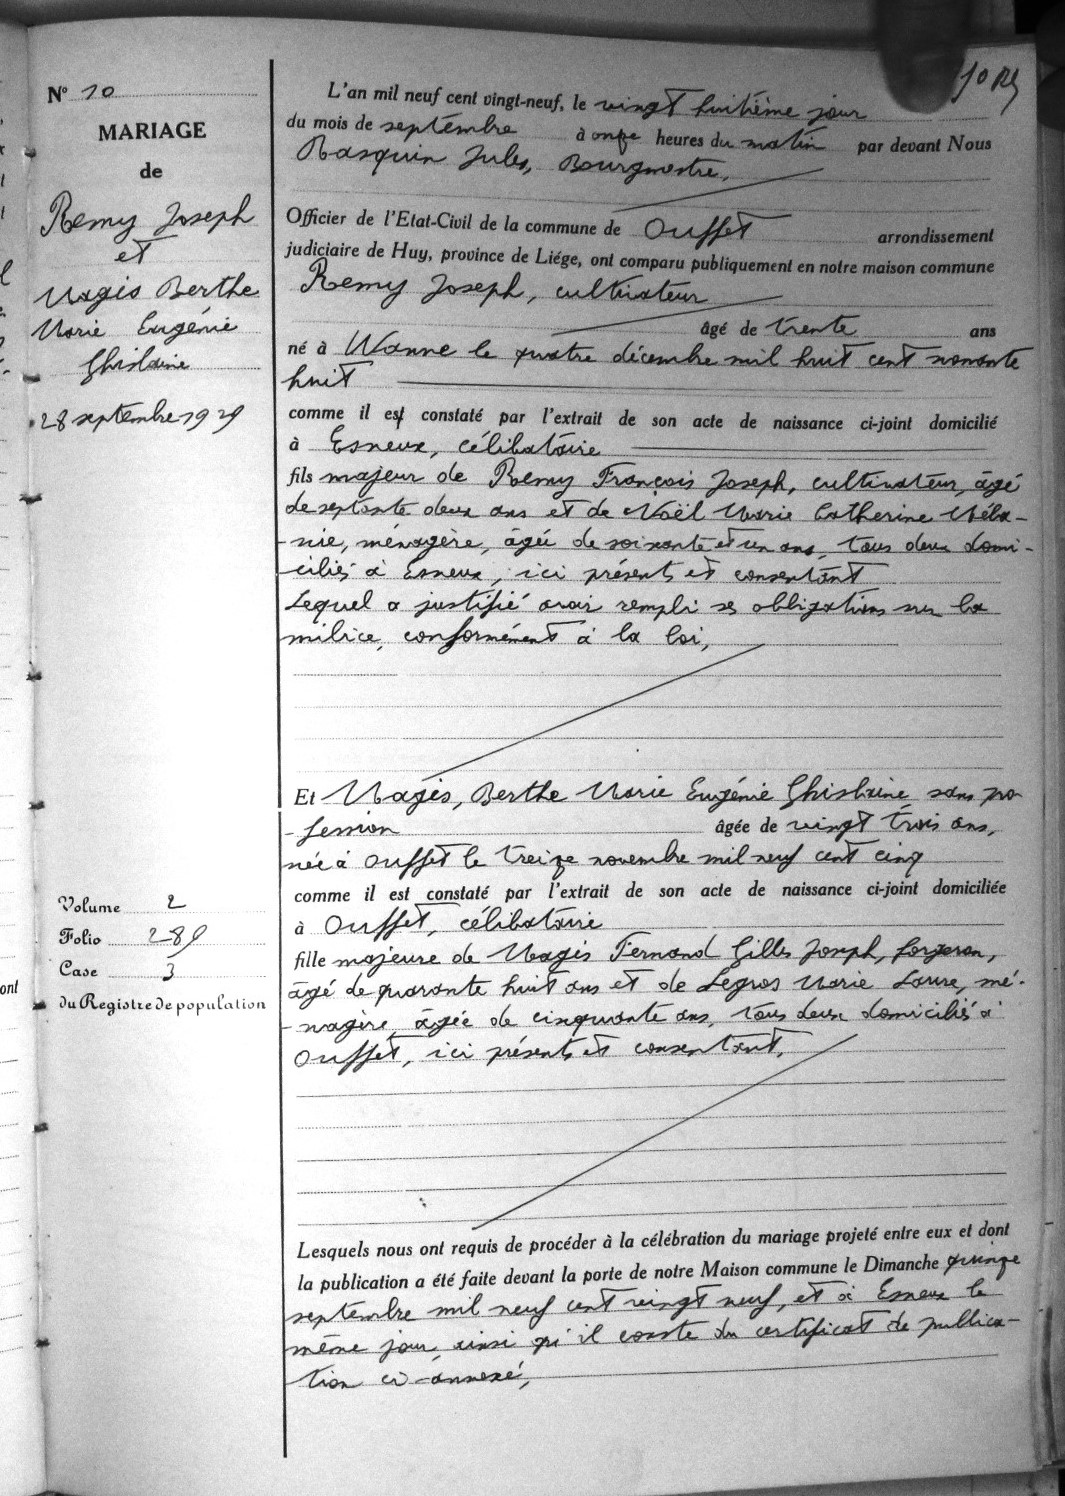 Nº 10
MARIAGE
de
Remy Joseph
et
Magis Berthe
Marie Eugénie
Ghislaine
28 septembre 1929
Volume 2
Folio 289
Case 3
du Registre de population
ont
10
L'an mil neuf cent vingt-neuf, le vingt huitième jour
du mois de septembre à onze heures du matin par devant Nous
Rasquin Jules, Bourgmestre,
Officier de l'Etat-Civil de la commune de Ouffet arrondissement
judiciaire de Huy, province de Liége, ont comparu publiquement en notre maison commune
Remy Joseph, cultivateur
âgé de trente ans
né à Wanne le quatre décembre mil huit cent nonante
huit
comme il est constaté par l'extrait de son acte de naissance ci-joint domicilié
à Esneux, célibataire
fils majeur de Remy François Joseph, cultivateur, âgé
de septante deux ans et de Noël Marie Catherine Méla-
-nie, ménagère, âgée de soixante et un ans, tous deux domi-
-ciliés à Esneux, ici présents et consentant
Lequel a justifié avoir rempli ses obligations sur la
milice, conformément à la loi,
Et Magis, Berthe Marie Eugénie Ghislaine sans pro
-fession âgée de vingt trois ans,
née à Ouffet le treize novembre mil neuf cent cinq
comme il est constaté par l'extrait de son acte de naissance ci-joint domiciliée
à Ouffet, célibataire
fille majeure de Magis Fernand Gilles Joseph, forgeron,
âgé de quarante huit ans et de Legros Marie Laure, mé-
-nagère, âgée de cinquante ans, tous deux domiciliés à
Ouffet, ici présents et consentant,
Lesquels nous ont requis de procéder à la célébration du mariage projeté entre eux et dont
la publication a été faite devant la porte de notre Maison commune le Dimanche quinze
septembre mil neuf cent vingt neuf, et à Esneux le
même jour, ainsi qu'il conste du certificat de publica-
tion ci-annexé,